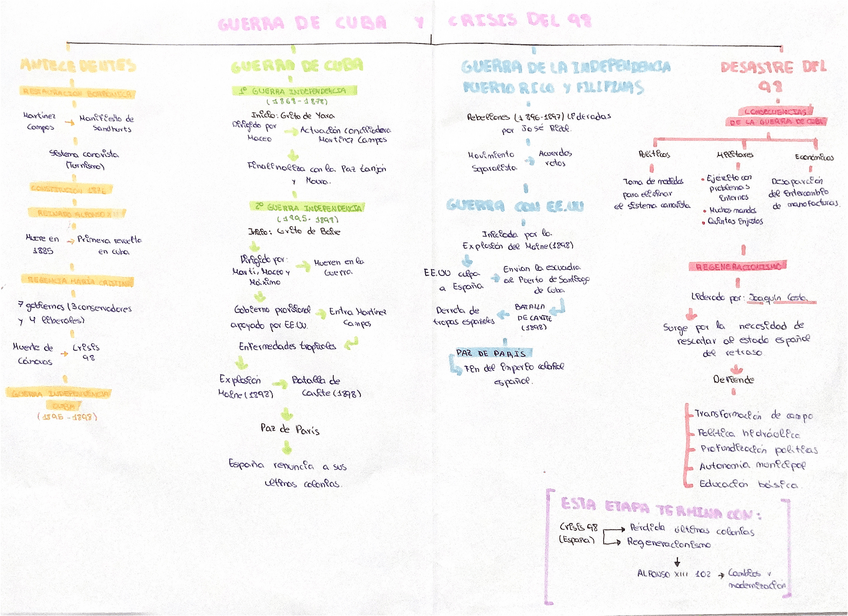 GUERRA DE CUBA Y CRISIS DEL 98
ANTECEDENTES
RESTAURACIÓN BORBÓNICA
Martínez → Manifiesto de
Campos Sandhurts
Sistema canovista
(Turnismo)
CONSTITUCIÓN 1876
REINADO ALFONSO XII
Muere en → Primera revuelta
1885 en cuba
REGENCIA MARÍA CRISTINA
7 gobiernos (3 conservadores
y 4 liberales)
Muerte de → Crisis
Cánovas 98
GUERRA INDEPENDENCIA
CUBA
(1895-1898)
GUERRA DE CUBA
1º GUERRA INDEPENDENCIA
(1868-1878)
Inicio: Grito de Yara
Dirigido por → Actuación conciliadora
Maceo Martínez Campos
Finalinaliza con la Paz Zanjón
y
2º GUERRA INDEPENDENCIA
(1895-1898)
Inicio: Grito de Baire
Dirigido por: → Mueren en la
Martí, Maceo y Guerra
Máximo
Gobierno provisional → Entra Martínez
apoyado por EE.UU. Campos
Enfermedades tropicales
Explosión → Batalla de
Maine (1898) Cavite (1898)
Paz de París
España renuncia a sus
últimas colonias.
GUERRA DE LA INDEPENDENCIA
PUERTO RICO Y FILIPINAS
Rebeliones (1896-1897) lideradas
por José Rizal.
Movimiento → Acuerdos
Separatista rotos
GUERRA CON EE.UU
Iniciada por la
Explosión del Maine (1898)
EE.UU culpa → Envían la escuadra
a España al Puerto de Santiago
de Cuba
Derrota de ← BATALLA
tropas españolas DE CAVITE
(1898)
PAZ DE PARÍS
Fin del Imperio colonial
español.
DESASTRE DEL
98
CONSECUENCIAS
DE LA GUERRA DE CUBA
Políticas
Toma de medidas
para eliminar
el sistema canovista
Militares
• Ejército con
problemas
internos
• Mucho mando
• Quintas Injustas
Económicas
Desaparición
del intercambio
de manofacturas.
REGENERACIONISMO
Liderado por: Joaquín Costa
Surge por la necesidad de
rescatar al estado español
del retraso
Defiende
Transformación de campo
Política hidráulica
Profundización políticas
Autonomía municipal
Educación básica
ESTA ETAPA TERMINA CON:
Crisis 98 → Pérdida últimas colonias
(España) → Regeneracionismo
ALFONSO XIII 102 → Cambios y
modernización